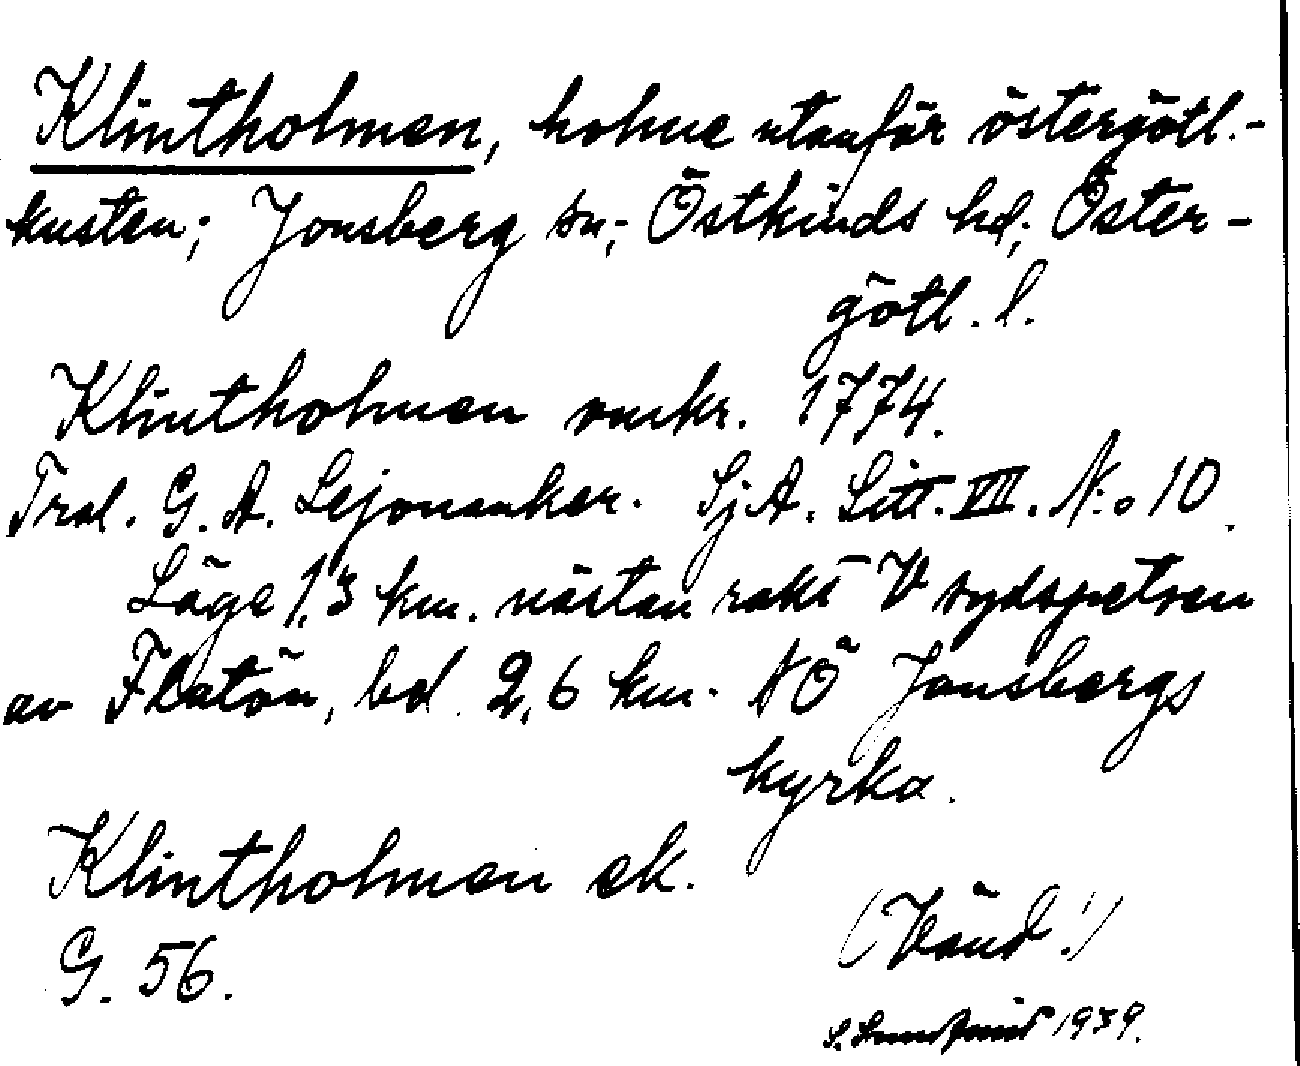 Klintholmen, holme utanför östergötl.-
kusten; Jonsberg sn; Östkinds hd; Öster-
götl. l.
Klintholmen omkr. 1774.
Trol. G. A. Lejonanker. SjA. Litt. VIII. N:o 10.
Läge 1,3 km. nästan rakt V sydspetsen
av Flatön, bd. 2,6 km. NÖ Jonsbergs
kyrka.
Klintholmen ek.
G. 56.
(Vänd!)
S. Lundqvist 1939.